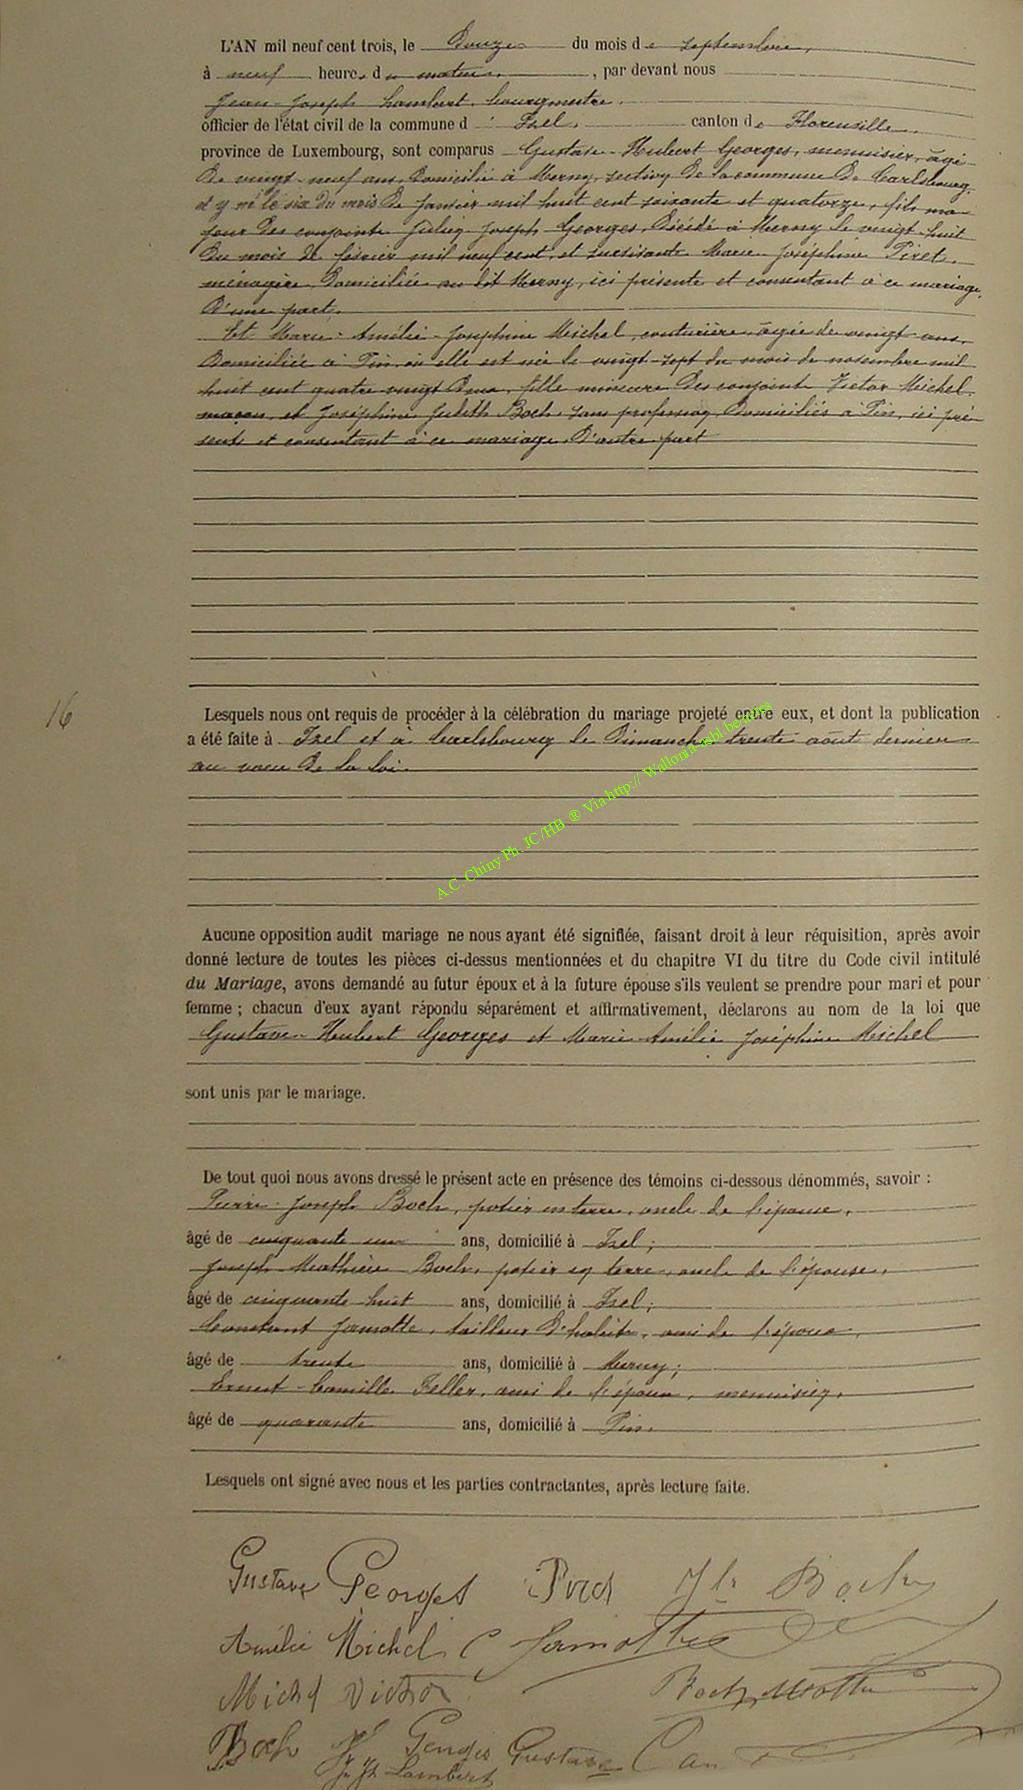 L'AN mil neuf cent trois, le Douze du mois de septembre,
à neuf heures du matin, par devant nous
Jean-Joseph Lambert, bourgmestre,
officier de l'état civil de la commune d'Izel, canton de Florenville,
province de Luxembourg, sont comparus Gustave-Hubert Georges, menuisier, âgé
de vingt-neuf ans, domicilié à Merny, section de la commune de Carlsbourg,
et y né le six du mois de janvier mil huit cent soixante et quatorze, fils ma-
jeur des conjoints Julien-Joseph Georges, décédé à Merny le vingt-huit
du mois de février mil neuf cent, et survivante Marie-Joséphine Piret,
ménagère, domiciliée au dit Merny, ici présente et consentant à ce mariage,
d'une part,
Et Marie-Amélie-Joséphine Michel, couturière, âgée de vingt ans,
domiciliée à Pin, où elle est née le vingt-sept du mois de novembre mil
huit cent quatre-vingt deux, fille mineure des conjoints Victor Michel,
maçon, et Joséphine Judith Boch, sans profession, domiciliés à Pin, ici pré-
sents et consentant à ce mariage, d'autre part
16
Lesquels nous ont requis de procéder à la célébration du mariage projeté entre eux, et dont la publication
a été faite à Izel et à Carlsbourg le Dimanche trente août dernier
au vœu de la loi.
A.C. Chiny Ph. JC/HB ® Via http:// Wallonia-asbl.be/actes
Aucune opposition audit mariage ne nous ayant été signifiée, faisant droit à leur réquisition, après avoir
donné lecture de toutes les pièces ci-dessus mentionnées et du chapitre VI du titre du Code civil intitulé
du Mariage, avons demandé au futur époux et à la future épouse s'ils veulent se prendre pour mari et pour
femme ; chacun d'eux ayant répondu séparément et affirmativement, déclarons au nom de la loi que
Gustave-Hubert Georges et Marie-Amélie Joséphine Michel
sont unis par le mariage.
De tout quoi nous avons dressé le présent acte en présence des témoins ci-dessous dénommés, savoir :
Pierre-Joseph Boch, potier en terre, oncle de l'épouse,
âgé de cinquante un ans, domicilié à Izel ;
Joseph Mathieu Boch, potier en terre, oncle de l'épouse,
âgé de cinquante huit ans, domicilié à Izel ;
Constant Jamotte, tailleur d'habits, ami de l'époux,
âgé de trente ans, domicilié à Merny ;
Ernest-Camille Feller, ami de l'époux, menuisier,
âgé de quarante ans, domicilié à Pin.
Lesquels ont signé avec nous et les parties contractantes, après lecture faite.
Gustave Georges Piret Jh Boch
Amélie Michel C Jamotte
Michel Victor Boch Mathieu
Boch Georges Gustave
J. Jh. Lambert